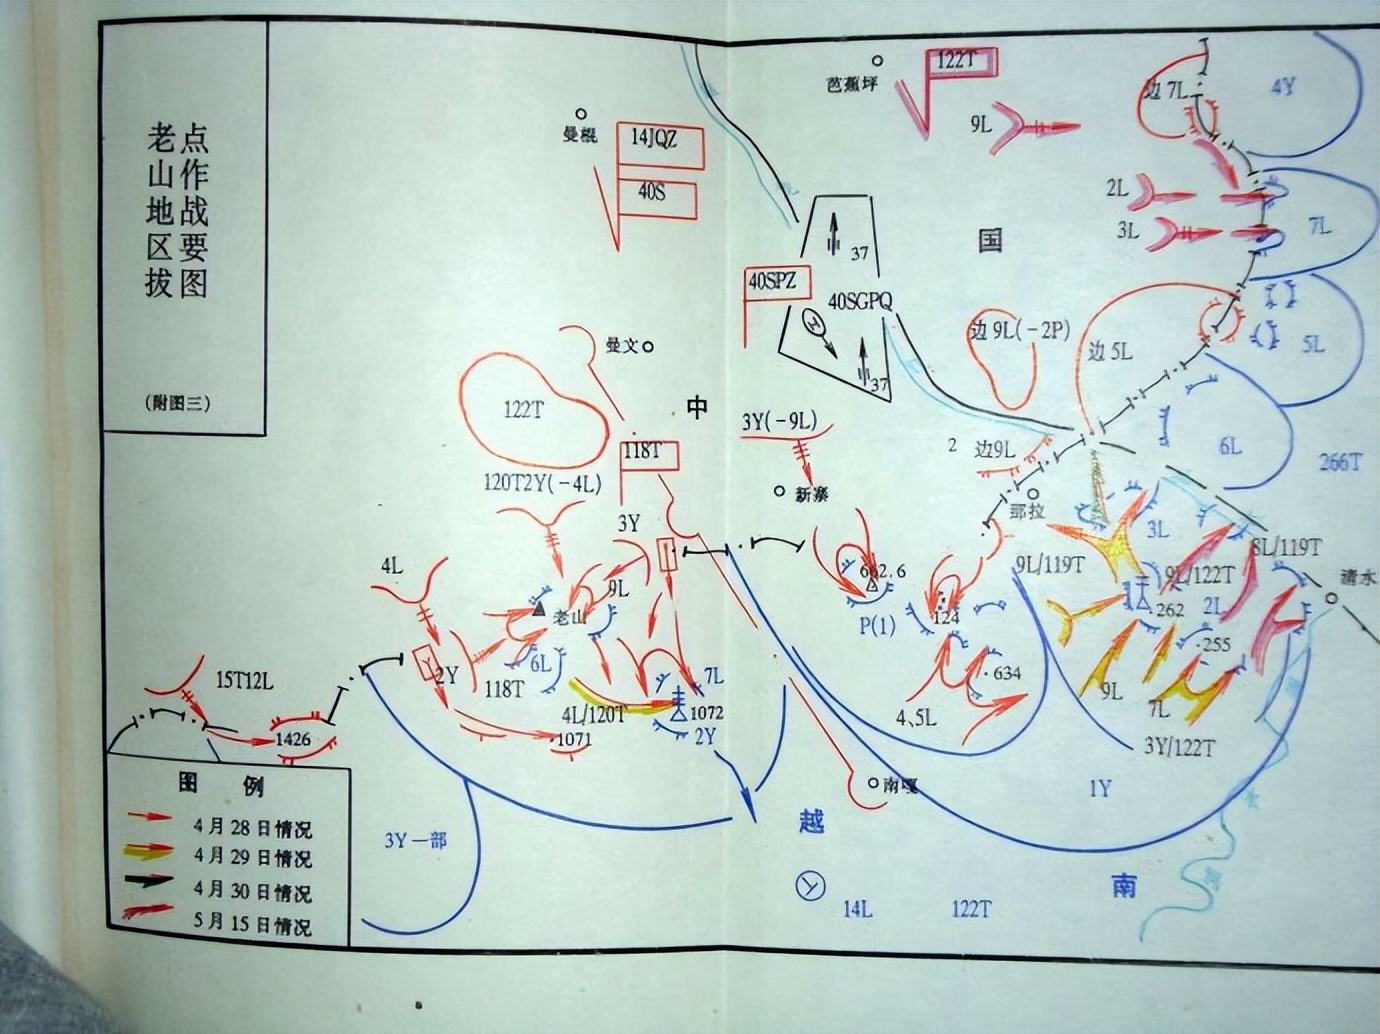 老山地区拔
点作战要图
(附图三)
芭蕉坪
122T
9L
边 7L
4Y
曼棍
14JQZ
40S
2L
3L
7L
国
37
40SPZ
40SGPQ
37
边 9L(-2P)
边 5L
5L
曼文
122T
中
3Y(-9L)
118T
120T2Y(-4L)
2
边9L
6L
266T
新寨
那拉
3Y
3L
4L
9L
662.6
9L/119T
8L/119T
9L/122T
清水
老山
P(1)
124
262
2L
255
6L
2Y
118T
7L
634
15T12L
9L
7L
4L/120T
1072
4、5L
1426
1071
2Y
3Y/122T
南嘎
1Y
越
南
3Y一部
14L
122T
图 例
4月28日情况
4月29日情况
4月30日情况
5月15日情况